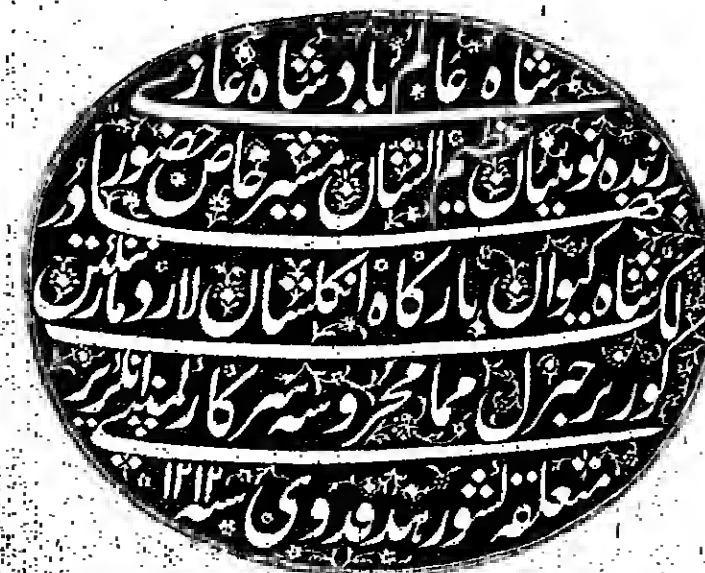 شاه عالم بادشاه غازے
زبده نوینیان عظیم الشان مشیر خاص حضور
شاه کیوان بارگاه انگلستان لارد مارنگٹن بهادر
گورنر جنرل ممالک محروسه سرکار کمپنے انگریز
متعلقه کشور هند فدوی سنه ۱۲۱۲